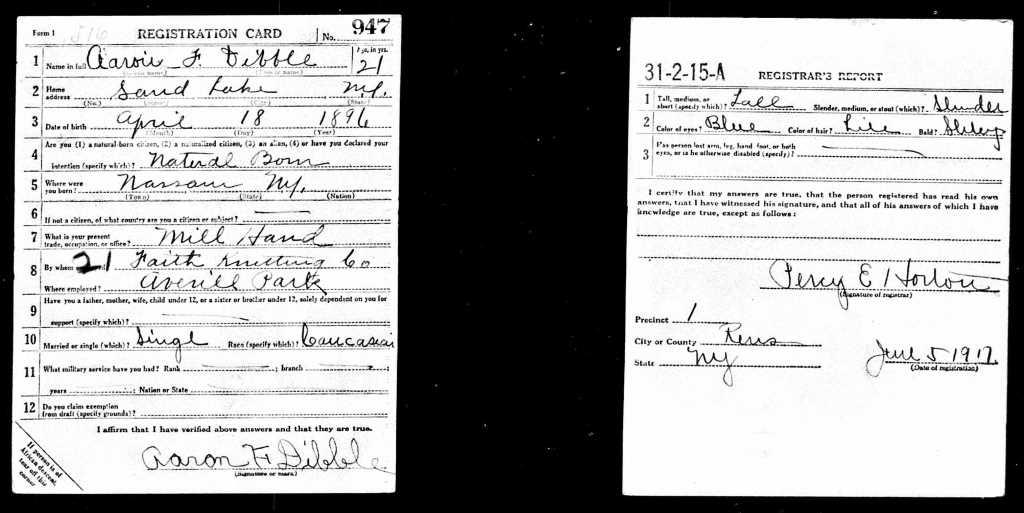 Form 1 516 REGISTRATION CARD No. 947
1 Name in full Aaron F. Dibble Age, in yrs. 21
(Given name) (Family name)
2 Home address Sand Lake N.Y.
(No.) (Street) (City) (State)
3 Date of birth April 18 1896
(Month) (Day) (Year)
4 Are you (1) a natural-born citizen, (2) a naturalized citizen, (3) an alien, (4) or have you declared your
intention (specify which)? Natural Born
5 Where were you born? Nassau N.Y.
(Town) (State) (Nation)
6 If not a citizen, of what country are you a citizen or subject?
7 What is your present trade, occupation, or office? Mill Hand
8 By whom employed? 21 Faith Knitting Co
Where employed? Averill Park
9 Have you a father, mother, wife, child under 12, or a sister or brother under 12, solely dependent on you for
support (specify which)?
10 Married or single (which)? Singl Race (specify which)? Caucasian
11 What military service have you had? Rank ; branch ;
years ; Nation or State
12 Do you claim exemption from draft (specify grounds)?
I affirm that I have verified above answers and that they are true.
Aaron F. Dibble
(Signature or mark)
If person is of
African descent,
tear off this
corner
31-2-15-A REGISTRAR'S REPORT
1 Tall, medium, or short (specify which)? Tall Slender, medium, or stout (which)? Slender
2 Color of eyes? Blue Color of hair? Bald?
3 Has person lost arm, leg, hand, foot, or both
eyes, or is he otherwise disabled (specify)?
I certify that my answers are true, that the person registered has read his own
answers, that I have witnessed his signature, and that all of his answers of which I have
knowledge are true, except as follows:
Percy E Horton
(Signature of registrar)
Precinct 1
City or County Rens
State NY
June 5 1917.
(Date of registration)